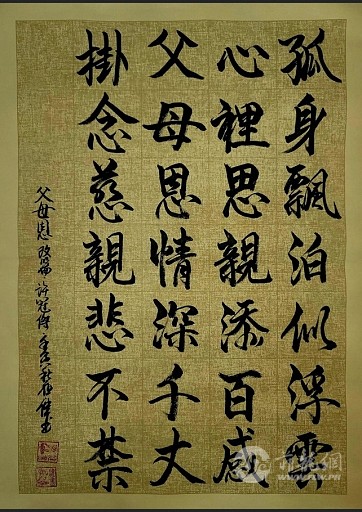 孤身飄泊似浮雲
心裡思親添百感
父母恩情深千丈
掛念慈親悲不禁
父母恩